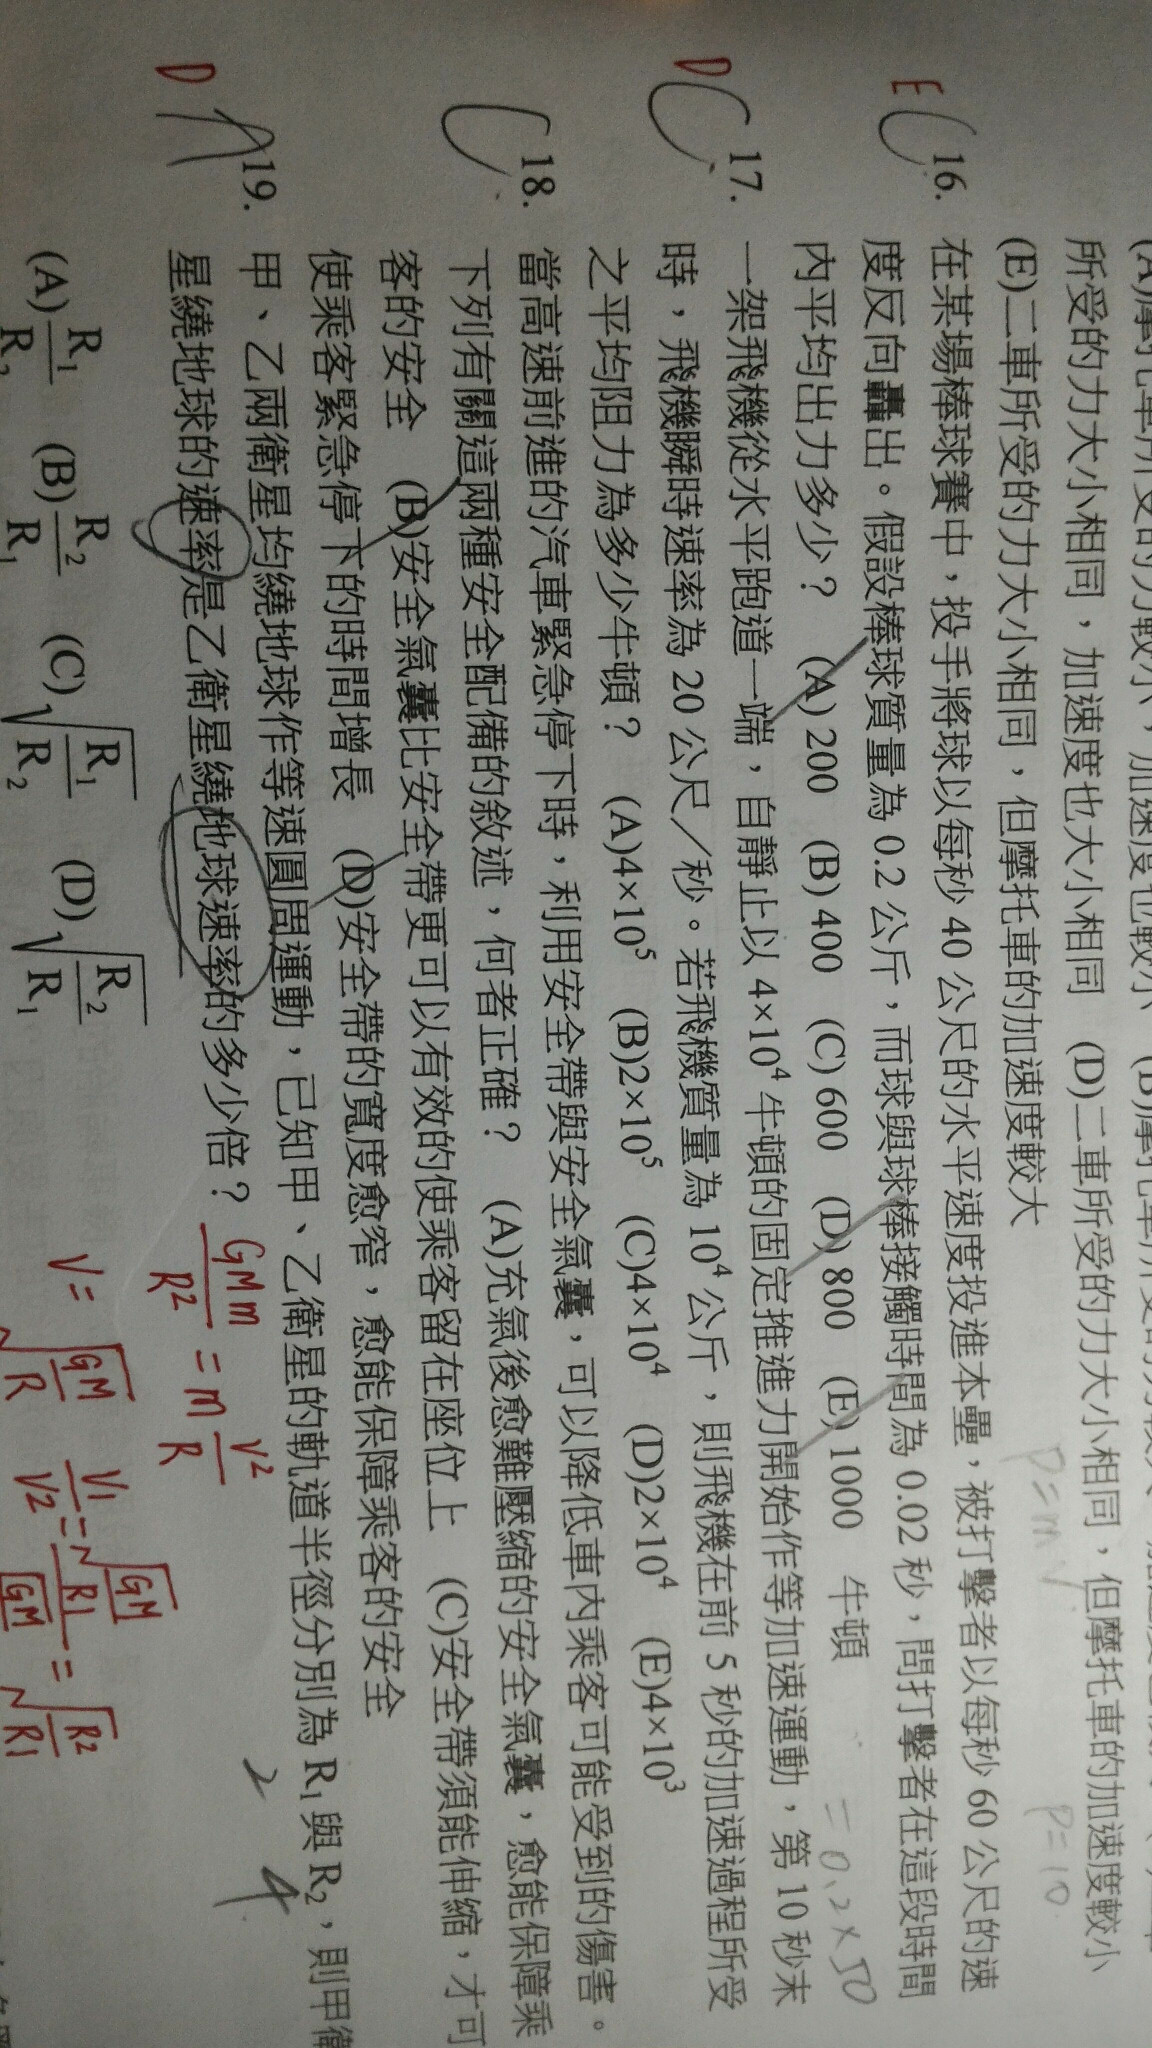 所受的力大小相同，加速度也大小相同 (D)二車所受的力大小相同，但摩托車的加速度較小
(E)二車所受的力大小相同，但摩托車的加速度較大
P=mV P=10
E C 16. 在某場棒球賽中，投手將球以每秒 40 公尺的水平速度投進本壘，被打擊者以每秒 60 公尺的速
度反向轟出。假設棒球質量為 0.2 公斤，而球與球棒接觸時間為 0.02 秒，問打擊者在這段時間
內平均出力多少？ (A) 200 (B) 400 (C) 600 (D) 800 (E) 1000 牛頓
=0.2×50
D C 17. 一架飛機從水平跑道一端，自靜止以 4×10⁴ 牛頓的固定推進力開始作等加速運動，第 10 秒末
時，飛機瞬時速率為 20 公尺／秒。若飛機質量為 10⁴ 公斤，則飛機在前 5 秒的加速過程所受
之平均阻力為多少牛頓？ (A)4×10⁵ (B)2×10⁵ (C)4×10⁴ (D)2×10⁴ (E)4×10³
C 18. 當高速前進的汽車緊急停下時，利用安全帶與安全氣囊，可以降低車內乘客可能受到的傷害。
下列有關這兩種安全配備的敘述，何者正確？ (A)充氣後愈難壓縮的安全氣囊，愈能保障乘
客的安全 (B)安全氣囊比安全帶更可以有效的使乘客留在座位上 (C)安全帶須能伸縮，才可
使乘客緊急停下的時間增長 (D)安全帶的寬度愈窄，愈能保障乘客的安全
D A 19. 甲、乙兩衛星均繞地球作等速圓周運動，已知甲、乙衛星的軌道半徑分別為 R₁ 與 R₂，則甲衛
星繞地球的速率是乙衛星繞地球速率的多少倍？
2 4
GMm/R² = m V²/R
(A) R₁/R₂ (B) R₂/R₁ (C) √(R₁/R₂) (D) √(R₂/R₁)
V= √(GM/R) V₁/V₂ = √(GM/R1)/√(GM = √(R2/R1)